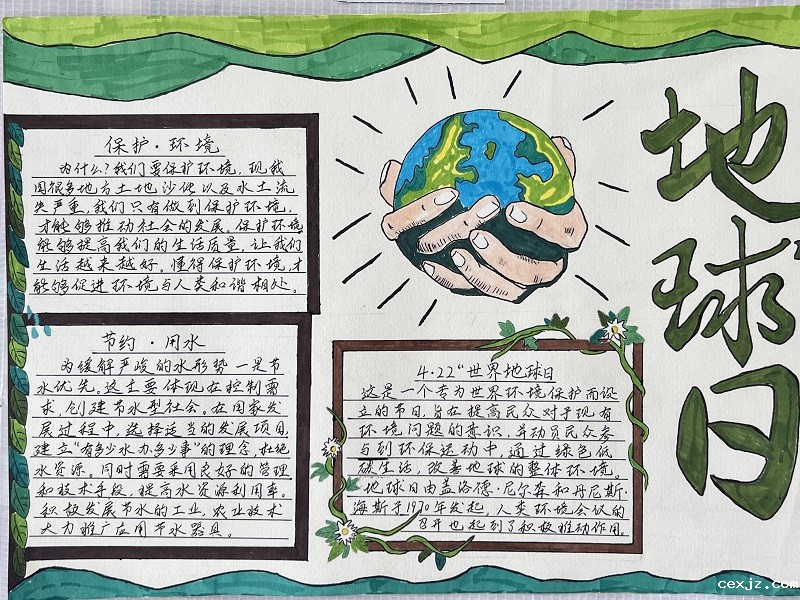 保护·环境
为什么?我们要保护环境,现我
国很多地方土地沙化以及水土流
失严重,我们只有做到保护环境,
才能够推动社会的发展。保护环境
能够提高我们的生活质量,让我们
生活越来越好。懂得保护环境,才
能够促进环境与人类和谐相处。
节约·用水
为缓解严峻的水形势一是节
水优先,这主要体现在控制需
求,创建节水型社会。在国家发
展过程中,选择适当的发展项目,
建立"有多少水办多少事"的理念,杜绝
水资源。同时需要采用良好的管理
和技术手段,提高水资源利用率。
积极发展节水的工业,农业技术
大力推广应用节水器具。
4·22"世界地球日
这是一个专为世界环境保护而设
立的节日,旨在提高民众对于现有
环境问题的意识,并动员民众参
与到环保运动中,通过绿色低
碳生活,改善地球的整体环境。
地球日由盖洛德·尼尔森和丹尼斯·
海斯于1970年发起,人类环境会议的
召开也起到了积极推动作用。
地球日
cexjz.com